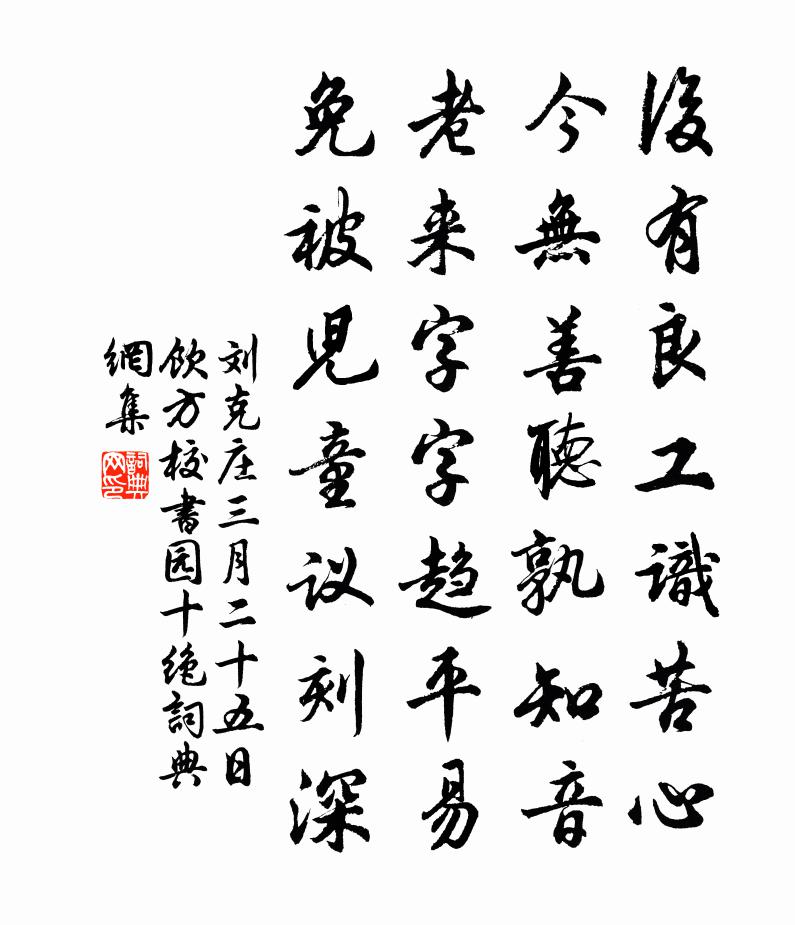 後有良工識苦心
今無善聽孰知音
老来字字趋平易
免被児童议刻深
刘克庄三月二十五日
飲方校書园十絶詞典
網集
詞典
网印